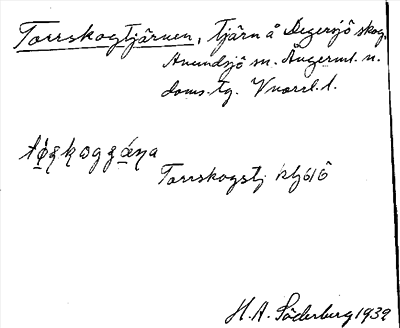 Torrskogtjärnen, tjärn å Degersjö skog,
Anundsjö sn. Ångerml. n.
doms.tg. Vnorrl. l.
Torrskogstj
H.A. Söderberg 1932